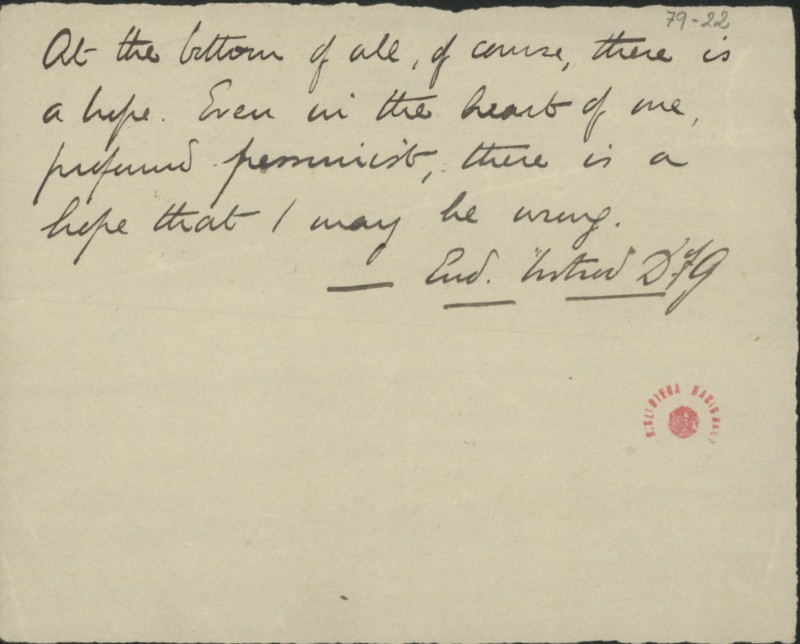 79-22
At the bottom of all, of course, there is
a hope. Even in the heart of me,
profound pessimist, there is a
hope that I may be wrong.
— End. "Introd" D of G
BIBLIOTECA NACIONAL